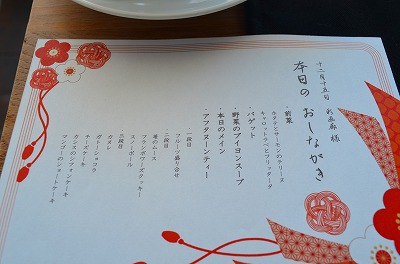 十二月十五日
本日の おしながき
・前菜
ホタテとサーモンのテリーヌ
キャロットラペとフリッタータ
・バゲット
・野菜のブイヨンスープ
・本日のメイン
・アフタヌーンティー
一段目
フルーツ盛り合せ
二段目
苺のムース
フランボワーズクッキー
スノーボール
三段目
カヌレ
ガトーショコラ
チーズケーキ
カシスのシフォンケーキ
マンゴーのショートケーキ